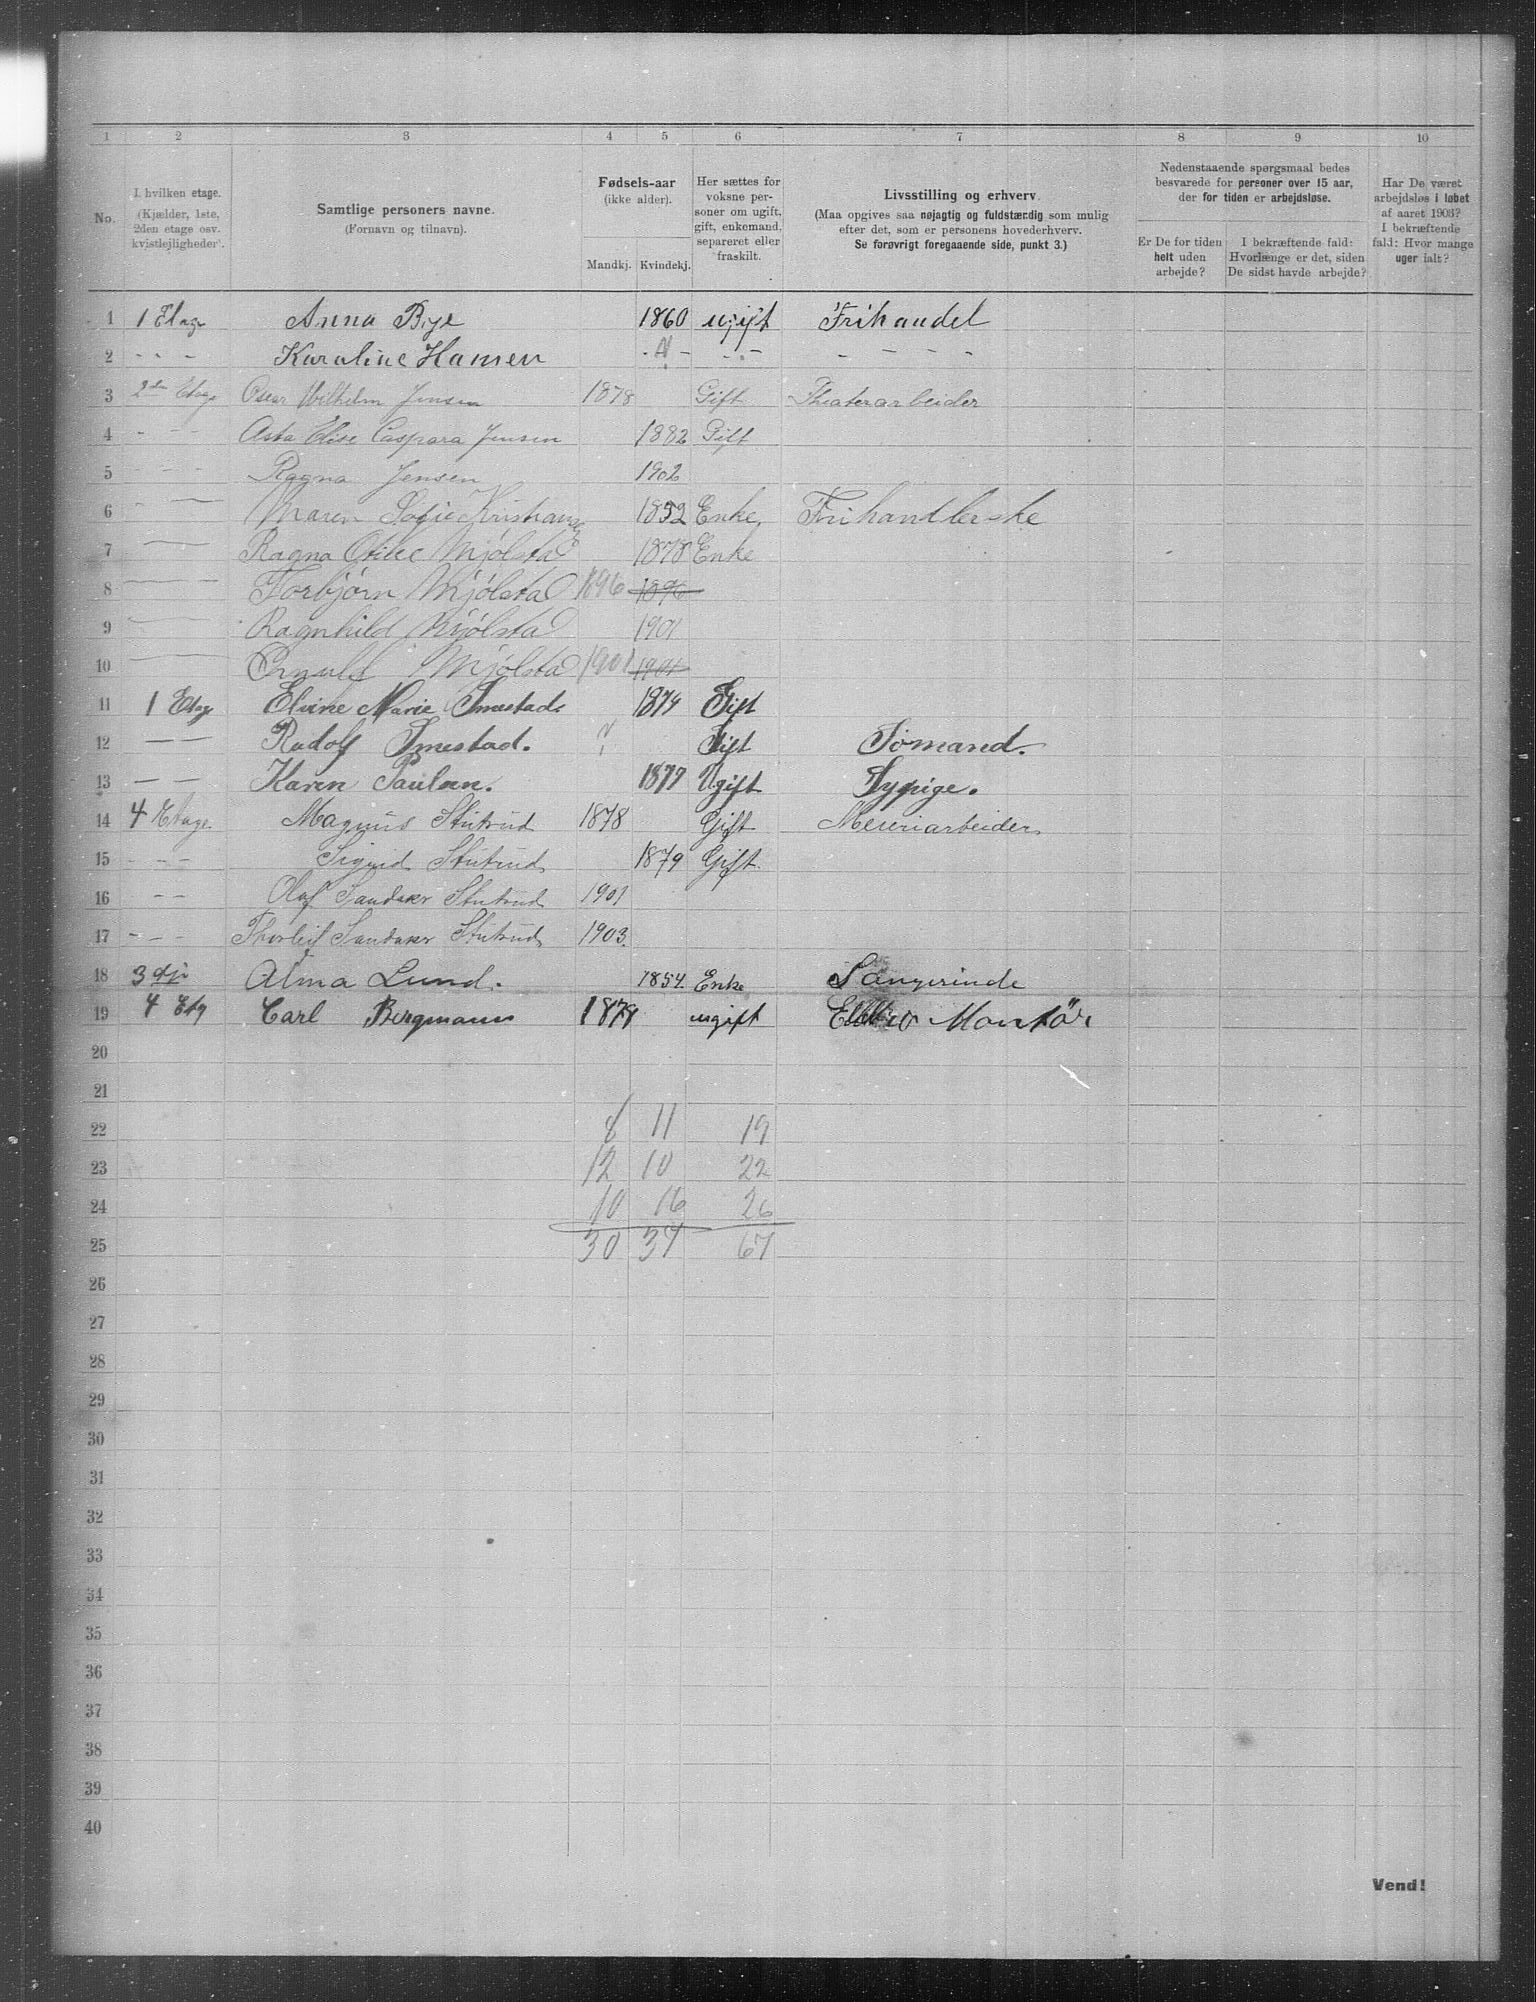 1 2 3 4 5 6 7 8 9 10
No. I hvilken etage. (Kjælder, 1ste, 2den etage osv. kvistlejligheder).
Samtlige personers navne. (Fornavn og tilnavn).
Fødsels-aar (ikke alder). Mandkj. Kvindekj.
Her sættes for voksne personer om ugift, gift, enkemand, separeret eller fraskilt.
Livsstilling og erhverv. (Maa opgives saa nøjagtig og fuldstændig som mulig efter det, som er personens hovederhverv. Se forøvrigt foregaaende side, punkt 3.)
Nedenstaaende spørgsmaal bedes besvarede for personer over 15 aar, der for tiden er arbejdsløse.
Er De for tiden helt uden arbejde?
I bekræftende fald: Hvorlænge er det, siden De sidst havde arbejde?
Har De været arbejdsløs i løbet af aaret 1903? I bekræftende fald: Hvor mange uger ialt?
1 1 Etage Anna Bye 1860 ugift Frihandel
2 - - - Karoline Hansen - - - - - - - -
3 2den Etage Oscar Wilhelm Jensen 1878 Gift Theaterarbeider
4 - - - Asta Elise Caspara Jensen 1882 Gift
5 - - - Ragna Jensen 1902
6 - - Maren Sofie Kristiansen 1852 Enke Frihandlerske
7 Ragna Otilie Mjölstad 1878 Enke
8 Torbjörn Mjölstad 1896 1896
9 Ragnhild Mjölstad 1901
10 Mjölstad 1901 1901
11 1 Etag Elvine Marie 1874 Gift
12 - - Rudolf Gift Sömand.
13 - - Karen Paulsen. 1877 Ugift Sypige.
14 4 Etage. Magnus Stutrud 1878 Gift Meieriarbeider
15 - - - Sigrid Stutrud 1879 Gift
16 - - Olaf Sandaker Stutrud 1901
17 - - - Thorleif Sandaker Stutrud 1903.
18 3 Alma Lund. 1854. Enke Sangerinde
19 4 Etg Carl Bergmann 1879 ugift Montör
20
21
22 8 11 19
23 12 10 22
24 10 16 26
25 30 37 67
26
27
28
29
30
31
32
33
34
35
36
37
38
39
40
Vend!